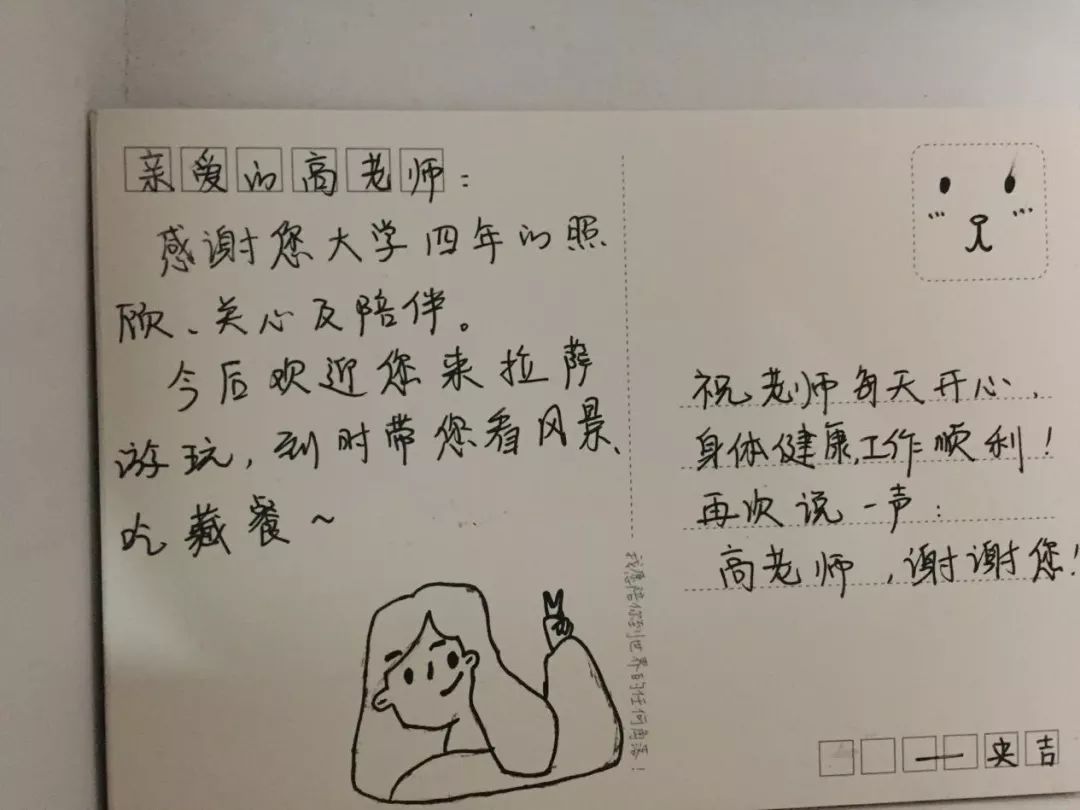 亲爱的高老师：
感谢您大学四年的照
顾、关心及陪伴。
今后欢迎您来拉萨
游玩，到时带您看风景、
吃藏餐~
我愿陪你到世界的任何角落！
祝老师每天开心、
身体健康、工作顺利！
再次说一声：
高老师，谢谢您！
——央吉